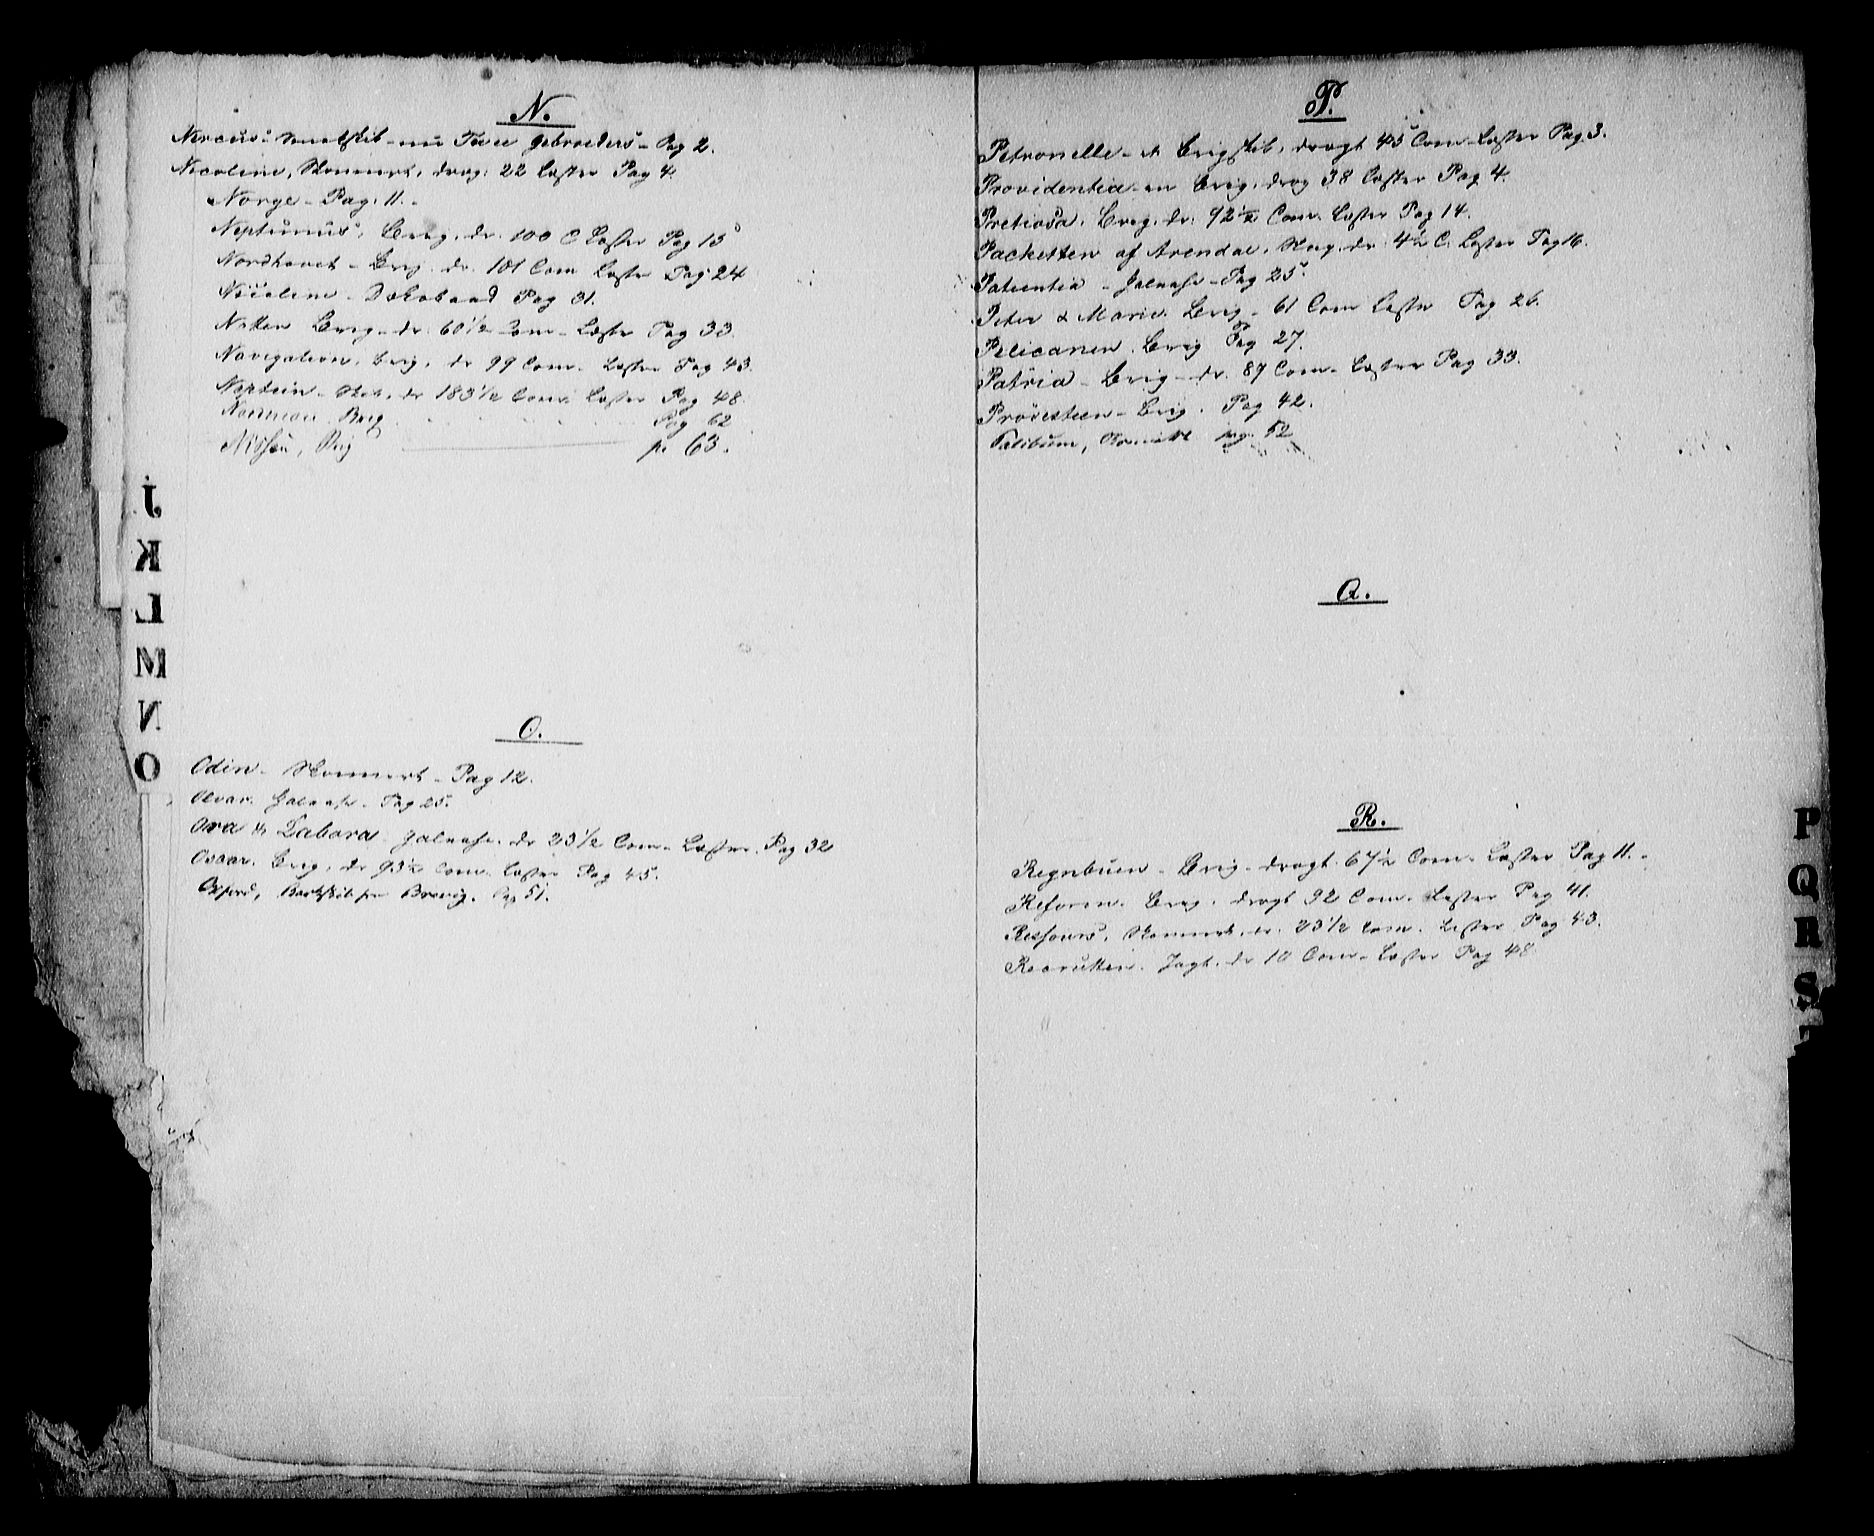 N.
Nereus Smakskib nu Twee Gebroeders - Pag 2.
Nicoline, Skonnert, drag: 22 Læster Pag 4.
Norge - Pag. 11. -
Neptunus, Brig. dr. 100 C Læster Pag 15
Nordhavet - Brig. dr. 101 Com Læster Pag 24
Nicoline - Dæksbaad Pag 31.
Brig - dr. 60 1/2 Com - Læster Pag 33.
Navigation. Brig. dr 99 Com. Læster Pag 43.
Neptun - Skib, dr 183 1/2 Com. Læster Pag 48.
Norman Brig Pag 62
Nissen, Brig p. 63.
O.
Odin - Skonnert - Pag 12.
Galease - Pag 25.
Ora & Labora. Galease. dr 23 1/2 Com. Læster. Pag 32
Oscar. Brig. dr 93 1/2 Com. Læster Pag 45.
Oxford, Barkskib fra Brevig. Pag 51.
J
K
L
M
N
O
P.
Petronelle - et Brigskib, dragt 45 Com. Læster Pag 3.
Providentia - en Brig. drag 38 Læster Pag 4.
Pretiosa. Brig. dr. 92 1/2 Com. Læster Pag 14.
Packetten af Arendal. dr. 4 1/2 C. Læster Pag 16.
Patientia - Galease - Pag 25.
Peter & Marie. Brig - 61 Com Læster Pag 26.
Pelicanen. Brig Pag 27.
Patria - Brig - dr. 87 Com. Læster Pag 33.
Prövesteen - Brig. Pag 42.
pag. 52
Q.
R.
Regnbuen - Brig - dragt. 67 1/2 Com. Læster Pag 11. -
Reform. Brig. dragt 92 Com. Læster Pag 41.
Ressours, Skonnert. dr. 23 1/2 Com. Læster Pag 43.
Jagt. dr 10 Com - Læster Pag 48
P
Q
R
S